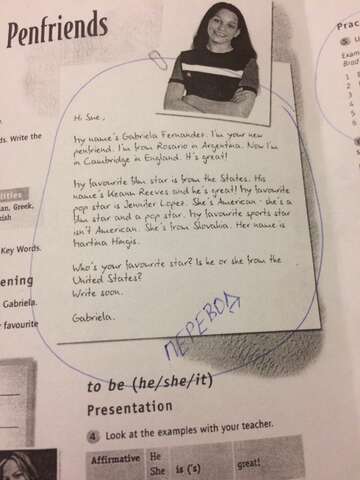 Penfriends
Hi Sue,
My name's Gabriela Fernandez. I'm your new
penfriend. I'm from Rosario in Argentina. Now I'm
in Cambridge in England. It's great!
My favourite film star is from the States. His
name's Keanu Reeves and he's great! My favourite
pop star is Jennifer Lopez. She's American - she's a
film star and a pop star. My favourite sports star
isn't American. She's from Slovakia. Her name is
Martina Hingis.
Who's your favourite star? Is he or she from the
United States?
Write soon.
Gabriela.
ПЕРЕВОД
ds. Write the
lities
an, Greek,
kish
Key Words.
ening
Gabriela.
favourite
to be (he/she/it)
Presentation
4 Look at the examples with your teacher.
Affirmative He
She is ('s) great!
Prac
5 U
Exam
Brad
1
2
3
4
5
6